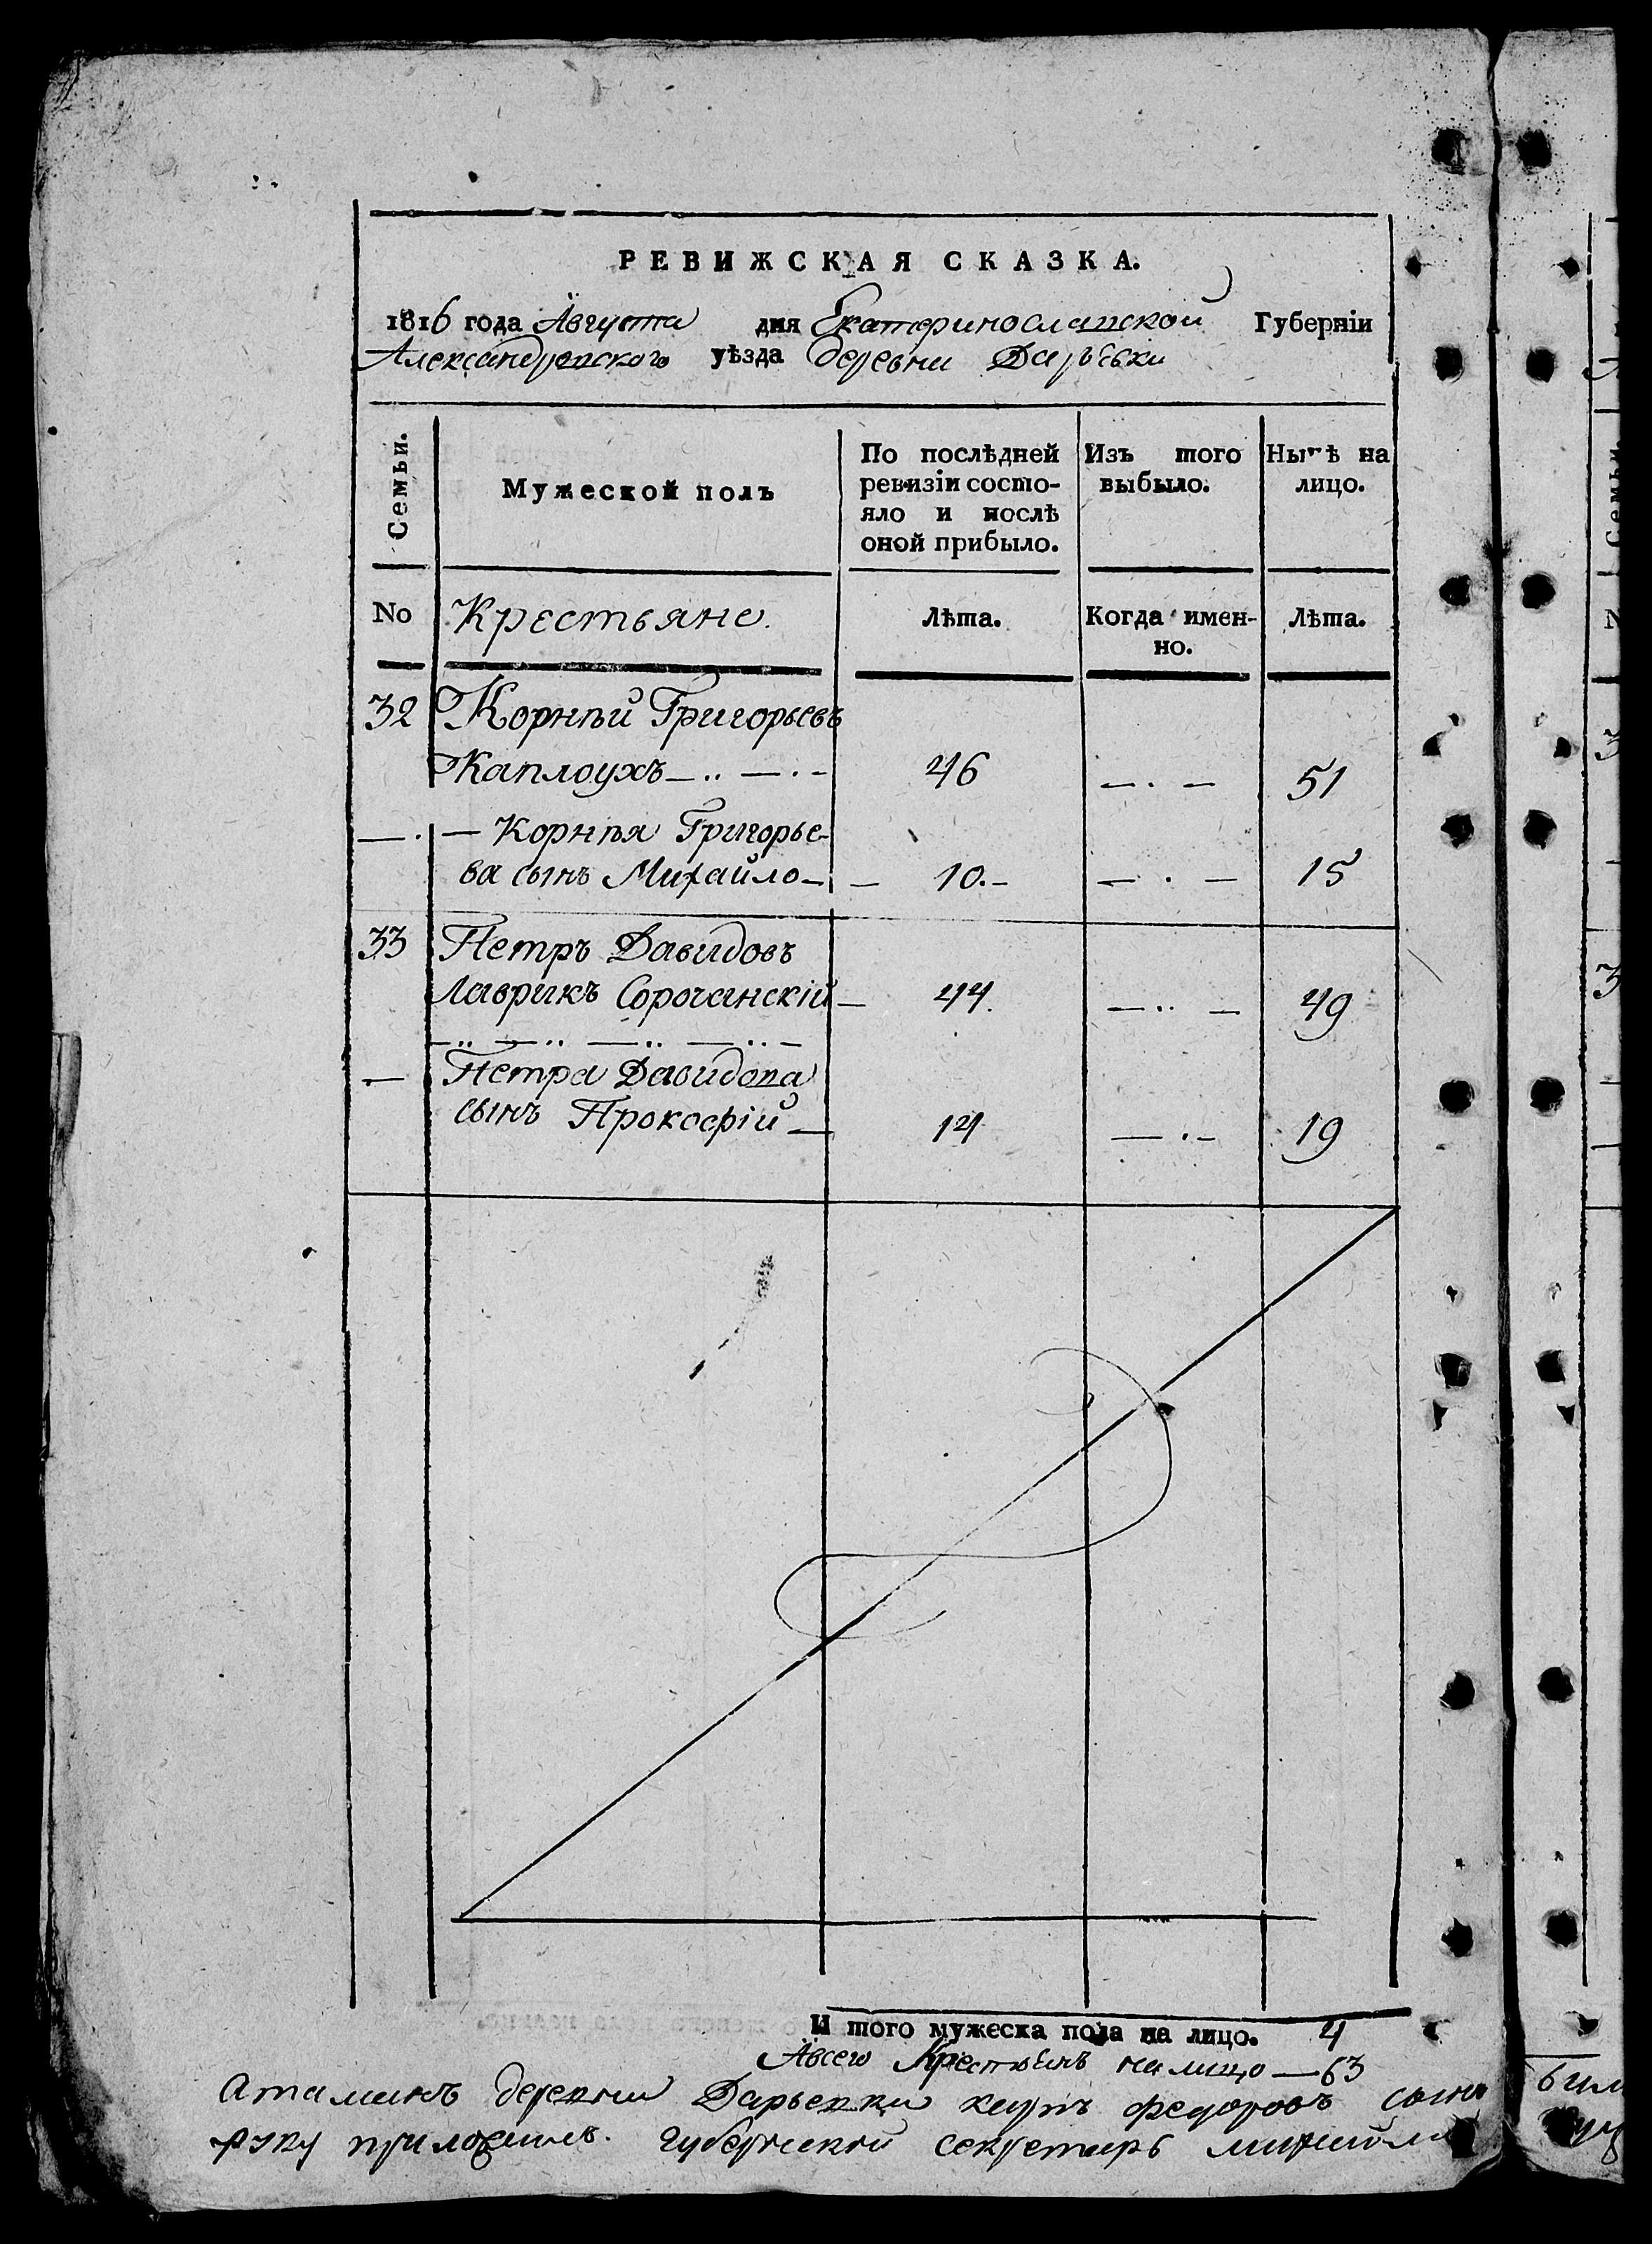 РЕВИЖСКАЯ СКАЗКА.
1816 года Августа дня Екатеринославской Губерніи
Александровского уѣзда деревни Дарьевки
Семьи.
Мужеской полъ
По послѣдней
ревизіи состо-
яло и послѣ
оной прибыло.
Изъ того
выбыло.
Нынѣ на
лицо.
No Крестьяне. Лѣта. Когда имен-
но. Лѣта.
32 Корнѣй Григорьевъ
Каплоухъ 46 51
— Корнѣя Григорье-
ва сынъ Михайло 10. 15
33 Петръ Давидовъ
Лаврикъ Сорочанскій 44. 49
Петра Давидова
сынъ Прокофій 14 19
И того мужеска пола на лицо. 4
Авсего Крестьянъ налицо — 63
Атаманъ деревни Дарьевки федоровъ сынъ
руку приложилъ. Губернской секретарь